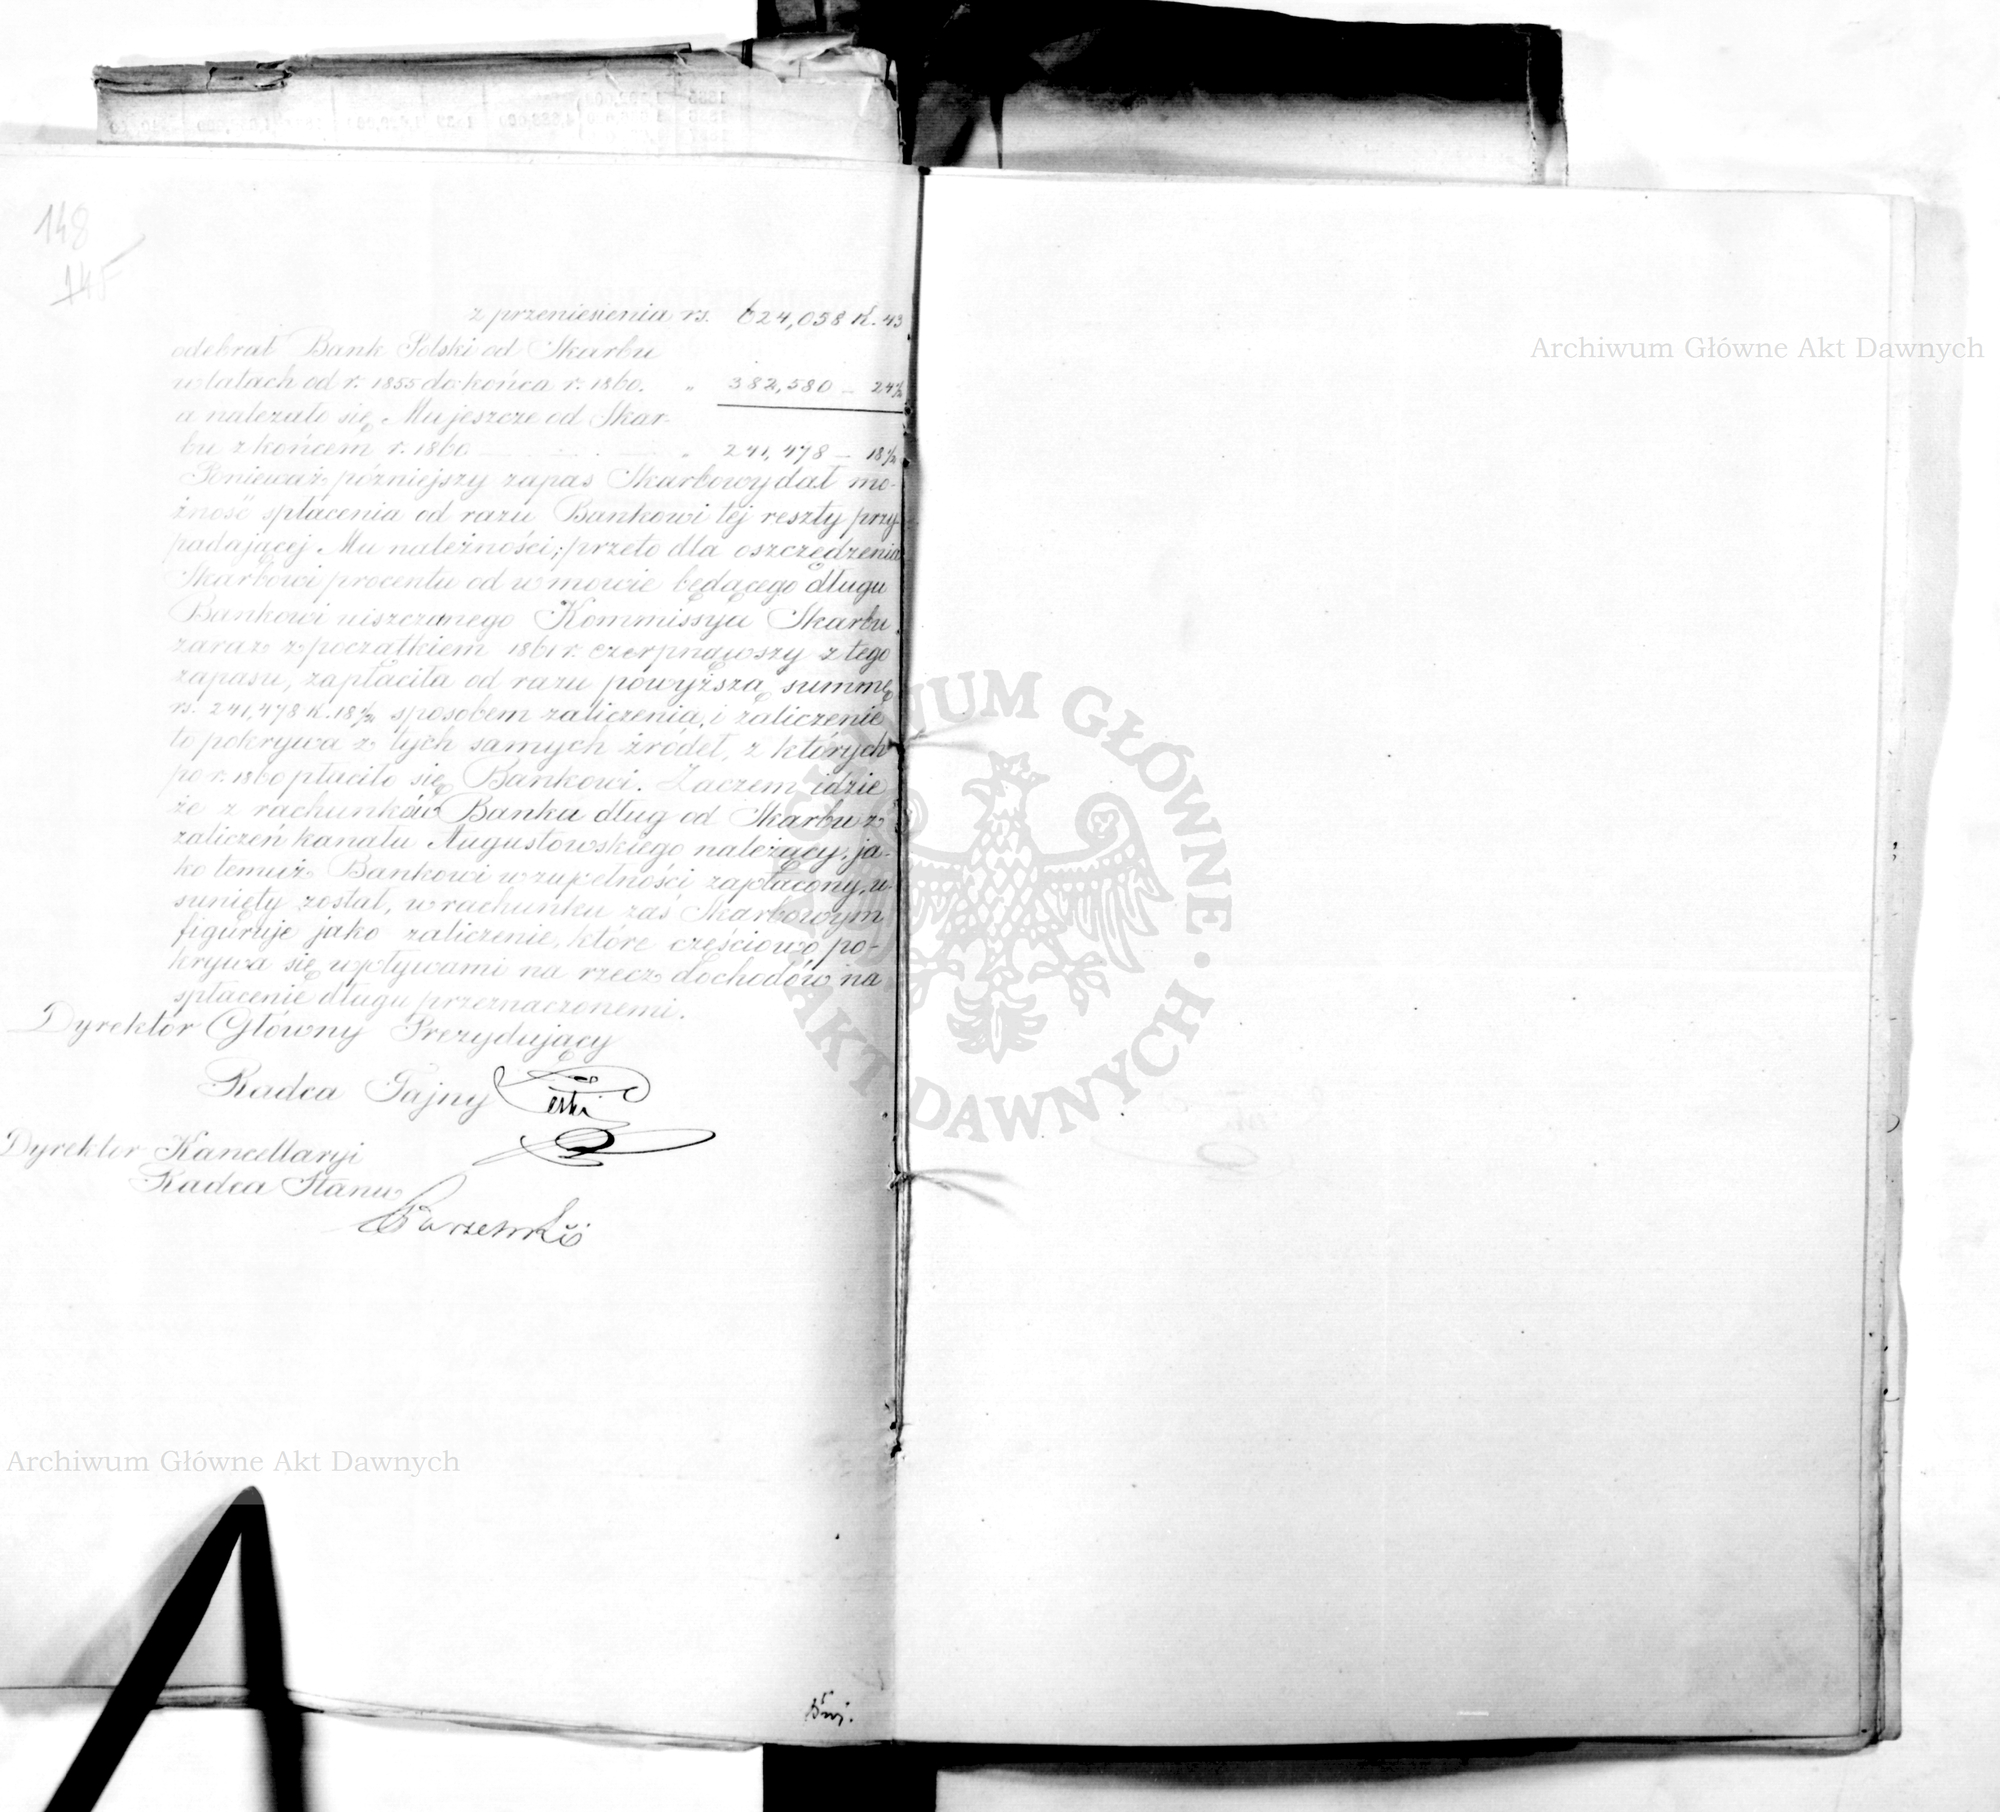 148
145
z przeniesienia rs. 624,058 K. 43
odebrał Bank Polski od Skarbu
w latach od r. 1855 do końca r. 1860. „ 382,580 — 24½
a należało się Mu jeszcze od Skar-
bu z końcem r. 1860 — „ 241,478 — 18½
Ponieważ późniejszy zapas Skarbowy dał mo-
żność spłacenia od razu Bankowi tej reszty przy-
padającej Mu należności; przeto dla oszczędzenia
Skarbowi procentu od w mowie będącego długu
Bankowi uiszczanego Kommissya Skarbu
zaraz z początkiem 1861 r. czerpnąwszy z tego
zapasu, zapłaciła od razu powyższą summę
rs. 241,478 K. 18½ sposobem zaliczenia, i zaliczenie
to pokrywa z tych samych źródeł, z których
po r. 1860 płaciło się Bankowi. Zaczem idzie
że z rachunków Banku dług od Skarbu z
zaliczeń kanału Augustowskiego należący, ja-
ko temuż Bankowi w zupełności zapłacony, u-
sunięty został, w rachunku zaś Skarbowym
figuruje jako zaliczenie, które częściowo po-
krywa się wpływami na rzecz dochodów na
spłacenie długu przeznaczonemi.
Dyrektor Główny Prezydujący
Radca Tajny Łęski
Dyrektor Kancellaryi
Radca Stanu
Archiwum Główne Akt Dawnych
Archiwum Główne Akt Dawnych
ARCHIWUM GŁÓWNE · AKT DAWNYCH ·